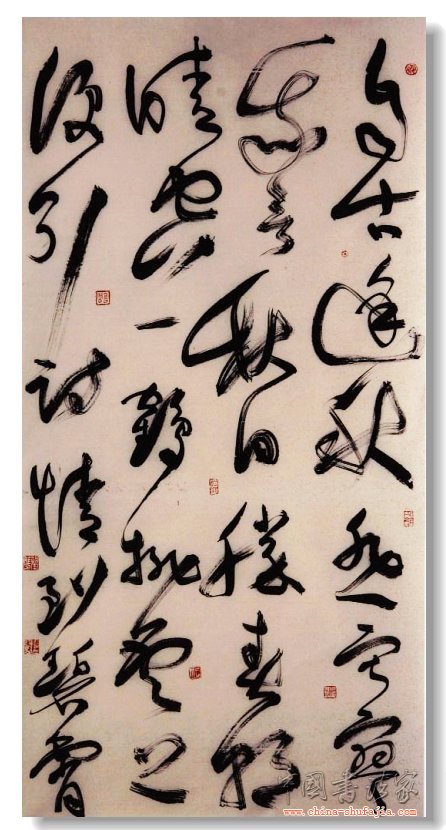 自古逢秋悲寂寥
我言秋日勝春朝
晴空一鶴排雲上
便引詩情到碧霄
中國書法家
www.china-shufajia.com